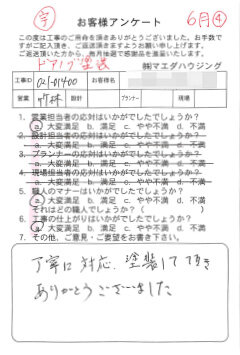 字
6月④
お客様アンケート
この度は工事のご用命を頂きありがとうございました。お手数で
すがご記入頂き、ご返送頂きますようお願い申し上げます。
ご返送頂いた方から、毎月抽選で感謝品を進呈いたします。
ドアノブ塗装
㈱マエダハウジング
工事ID 021-01400 お客様名
営業 竹林 設計 プランナー 現場
1. 営業担当者の応対はいかがでしたでしょうか?
a. 大変満足 b. 満足 c. やや不満 d. 不満
2. 設計担当者の応対はいかがでしたでしょうか?
a. 大変満足 b. 満足 c. やや不満 d. 不満
3. プランナーの応対はいかがでしたでしょうか?
a. 大変満足 b. 満足 c. やや不満 d. 不満
4. 現場担当者の応対はいかがでしたでしょうか?
a. 大変満足 b. 満足 c. やや不満 d. 不満
5. 職人のマナーはいかがでしたでしょうか?
a. 大変満足 b. 満足 c. やや不満 d. 不満
それはどの職人でしょうか?( )
6. 工事の仕上がりはいかがでしたでしょうか?
a. 大変満足 b. 満足 c. やや不満 d. 不満
7. その他、ご意見・ご要望をお書き下さい。
丁寧に対応、塗装して頂き
ありがとうございました